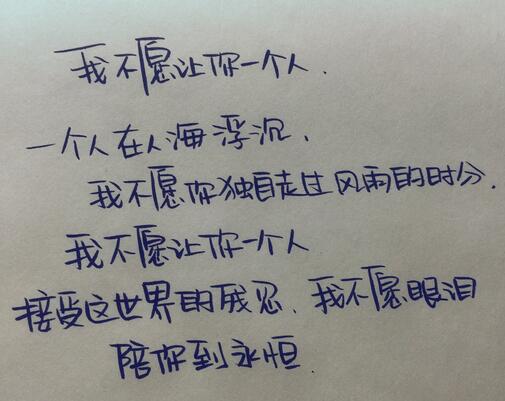 我不愿让你一个人.
一个人在人海浮沉.
我不愿你独自走过风雨的时分.
我不愿让你一个人
接受这世界的残忍.我不愿眼泪
陪你到永恒